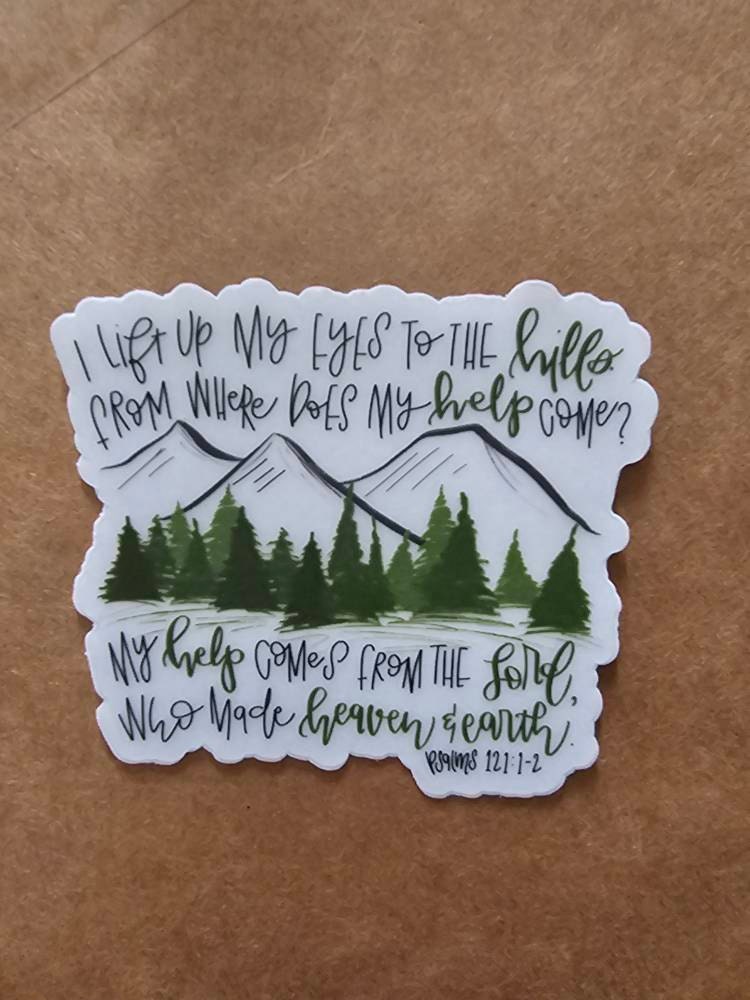 I Lift UP MY EYES TO THE hills.
FROM WHERE DOES MY help COME?
MY help COMES FROM THE Lord,
WHO Made heaven & earth.
Psalms 121:1-2